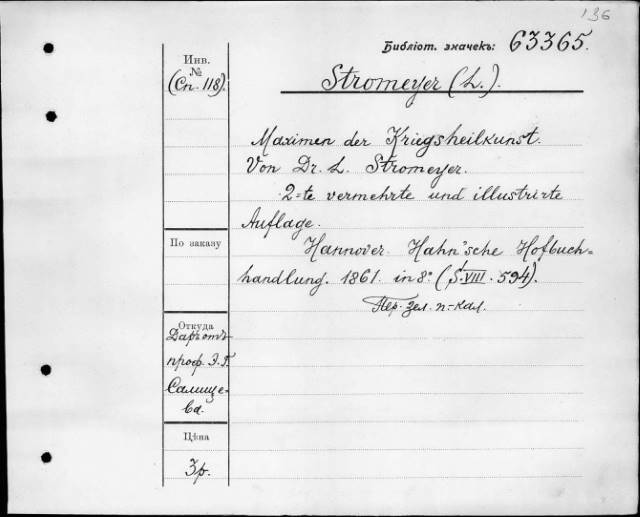 136
Библіот. значекъ: 63365.
Инв.
№
(Сп. 118).
Stromeyer (L.).
Maximen der Kriegsheilkunst.
Von Dr. L. Stromeyer.
2=te vermehrte und illustrirte
Auflage.
По заказу
Hannover. Hahn'sche Hofbuch-
handlung. 1861. in 8°. (S. VIII. 594).
Пер. зел. п.-кал.
Откуда
Даръ отъ
проф. Э. Г.
Салище-
ва.
Цѣна
3р.